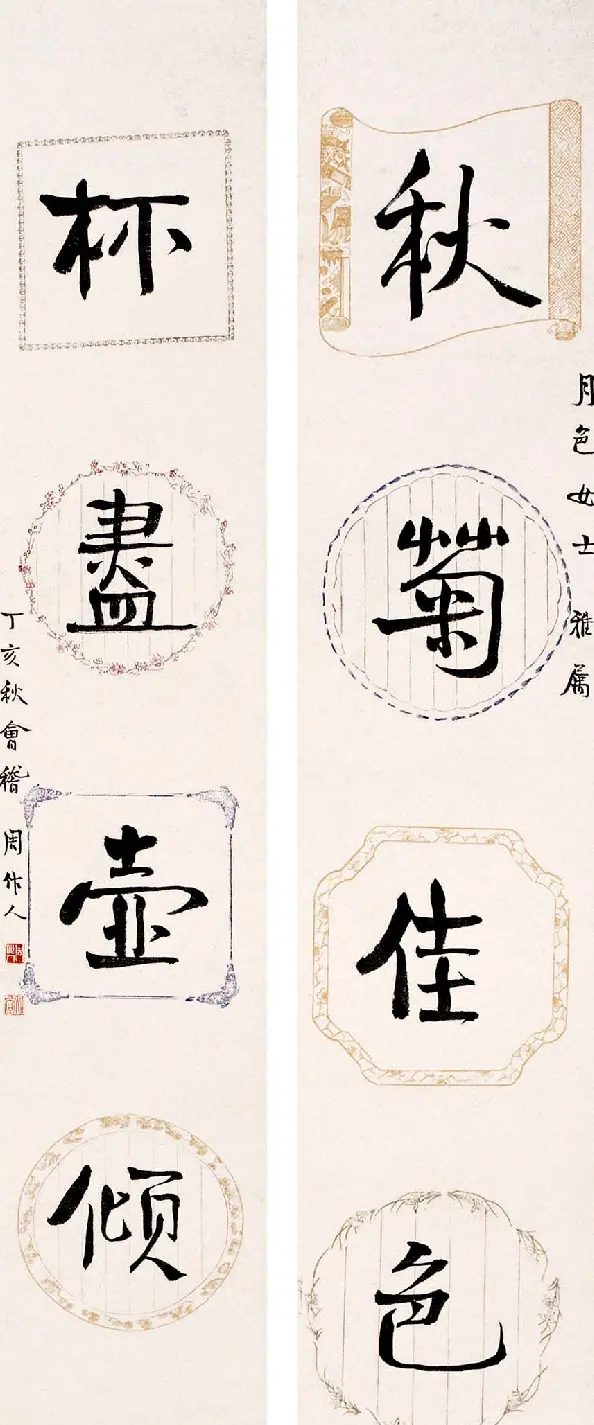 月色女士 雅属
秋菊佳色
杯盡壺傾
丁亥秋會稽 周作人